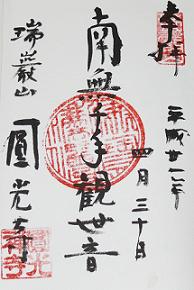 奉拝
平成廿二年
四月三十日
南無千手観世音
瑞巖山
圓光寺